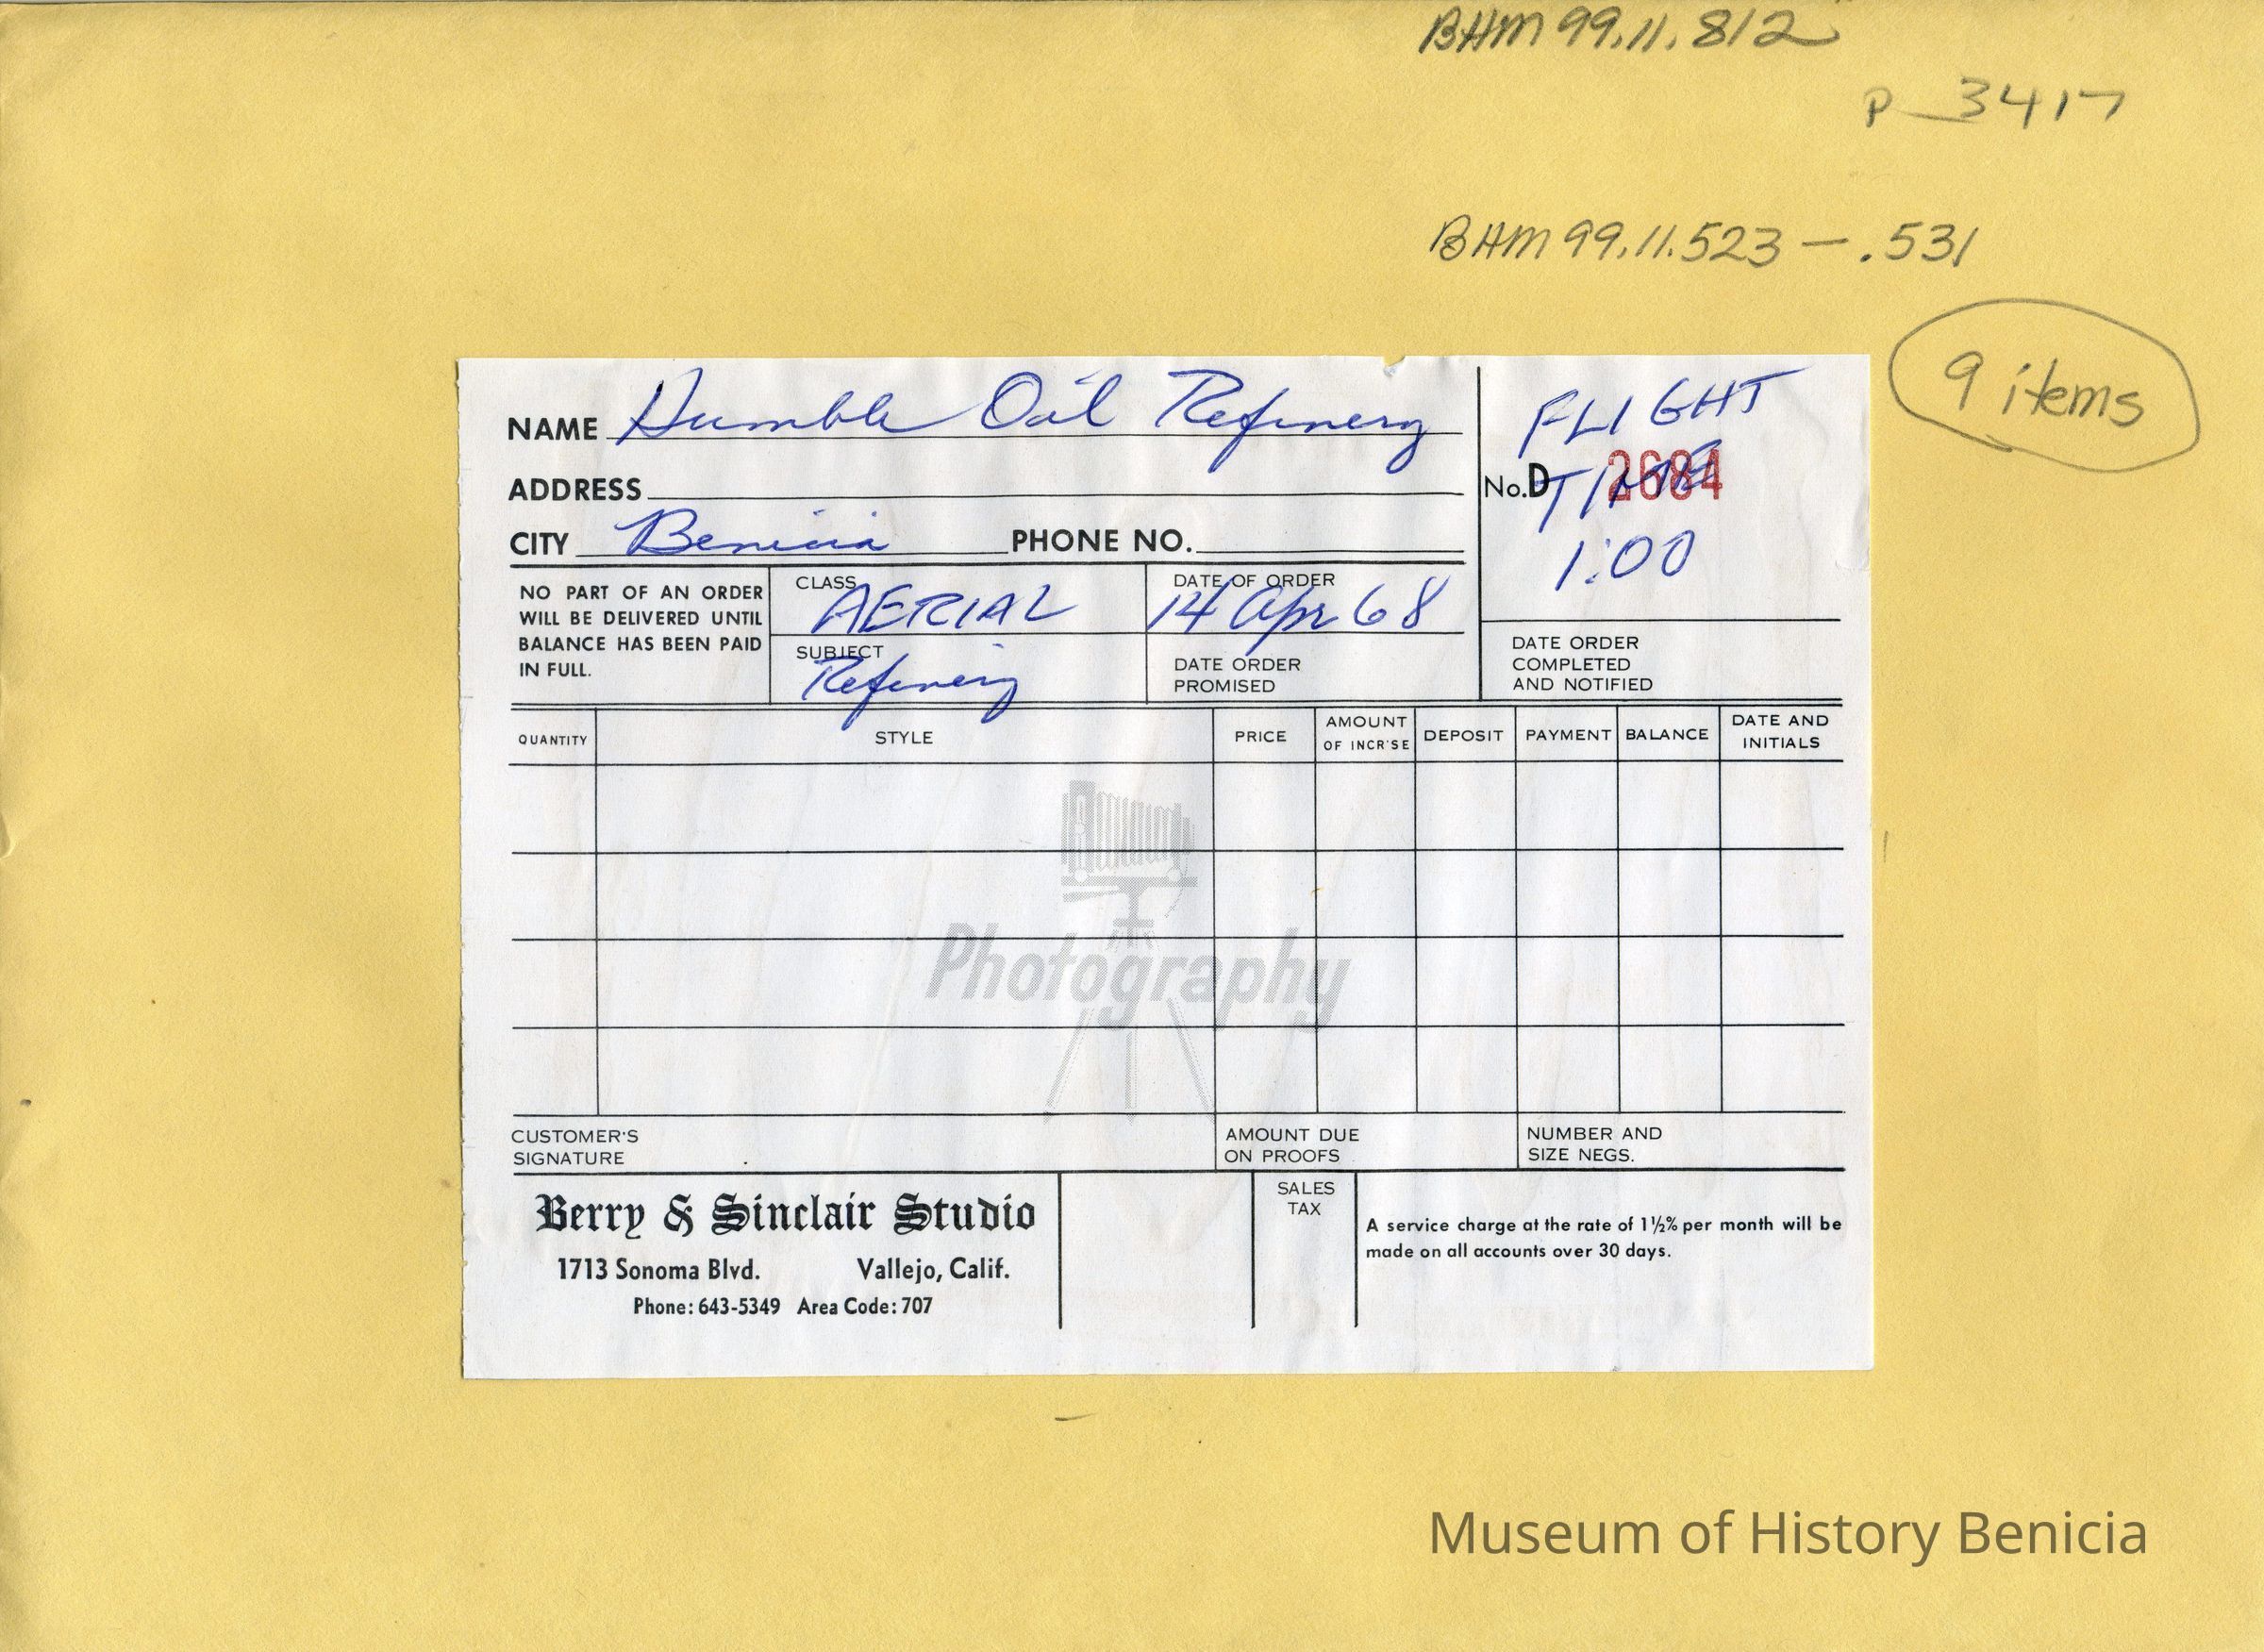 BHM 99.11.812
P 3417
BHM 99.11.523 — .531
9 items
NAME Humble Oil Refinery
FLIGHT
ADDRESS
No. D 2684
TIME
CITY Benicia PHONE NO.
1:00
NO PART OF AN ORDER
WILL BE DELIVERED UNTIL
BALANCE HAS BEEN PAID
IN FULL.
CLASS
AERIAL
DATE OF ORDER
14 Apr 68
SUBJECT
Refinery
DATE ORDER
PROMISED
DATE ORDER
COMPLETED
AND NOTIFIED
QUANTITY
STYLE
PRICE
AMOUNT
OF INCR'SE
DEPOSIT
PAYMENT
BALANCE
DATE AND
INITIALS
Photography
CUSTOMER'S
SIGNATURE
AMOUNT DUE
ON PROOFS
NUMBER AND
SIZE NEGS.
Berry & Sinclair Studio
1713 Sonoma Blvd. Vallejo, Calif.
Phone: 643-5349 Area Code: 707
SALES
TAX
A service charge at the rate of 1½% per month will be
made on all accounts over 30 days.
Museum of History Benicia